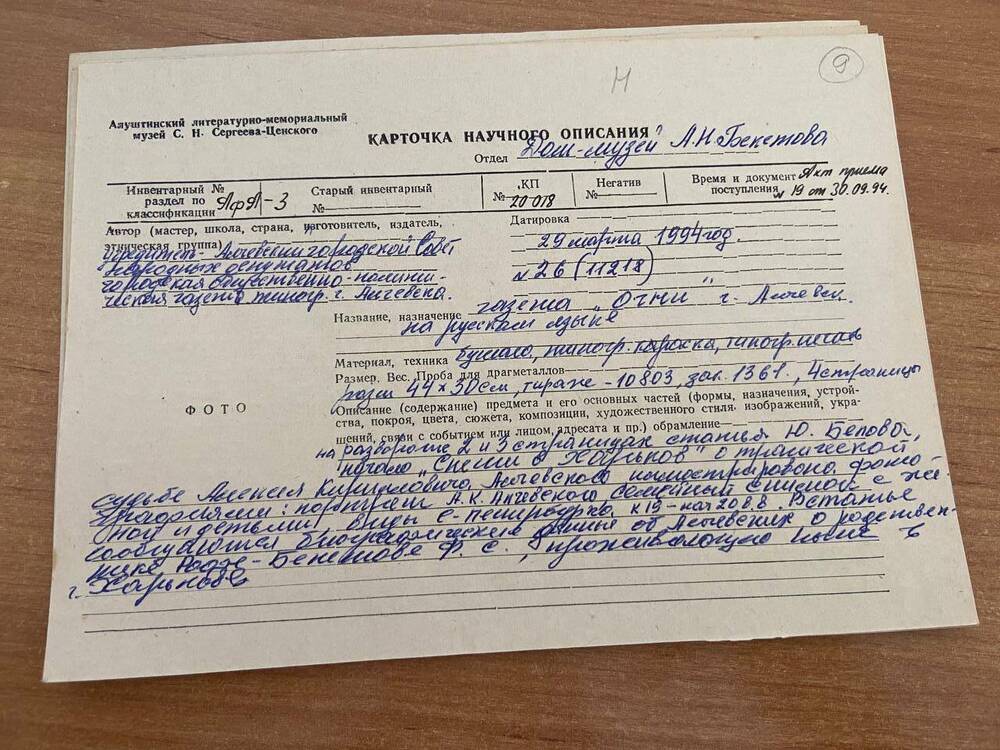 Н
9
Алуштинский литературно-мемориальный
музей С. Н. Сергеева-Ценского
КАРТОЧКА НАУЧНОГО ОПИСАНИЯ
Отдел Дом-музей А.Н Бекетова
Инвентарный №
раздел по
классификации АфА-3
Старый инвентарный
№
КП
№ 20 078
Негатив
№
Время и документ Акт приема
поступления № 19 от 30.09.94.
Автор (мастер, школа, страна, изготовитель, издатель,
этническая группа)
учредитель - Алчевский городской Совет
народных депутатов
городская общественно-полити-
ческая газета типогр. г. Алчевска.
Датировка
29 марта 1994 год.
№ 26 (11218)
Название, назначение газета „Огни" г. Алчевск.
на русском языке
Материал, техника бумага, типогр. краска, типогр. печать
Размер. Вес. Проба для драгметаллов
разм 44×30 см, тираж - 10803, зак. 1361., 4 страницы
ФОТО
Описание (содержание) предмета и его основных частей (формы, назначения, устрой-
ства, покроя, цвета, сюжета, композиции, художественного стиля. изображений, укра-
шений, связи с событием или лицом, адресата и пр.) обрамление
на развороте 2 и 3 страницах статья Ю. Белова,
начало „ с Харьков" о трагической
судьбе Алексея Кирилловича Алчевского иллюстрирована фото-
графиями: портрет А.К. Алчевского семейный с же-
ной и детьми, виды С-Петербурга к 19 - нач 20 в.в. В статье
сообщаются биографические данные об Алчевских о родствен-
нике Бекетове Ф. С., проживающую ныне в
г. Харькове